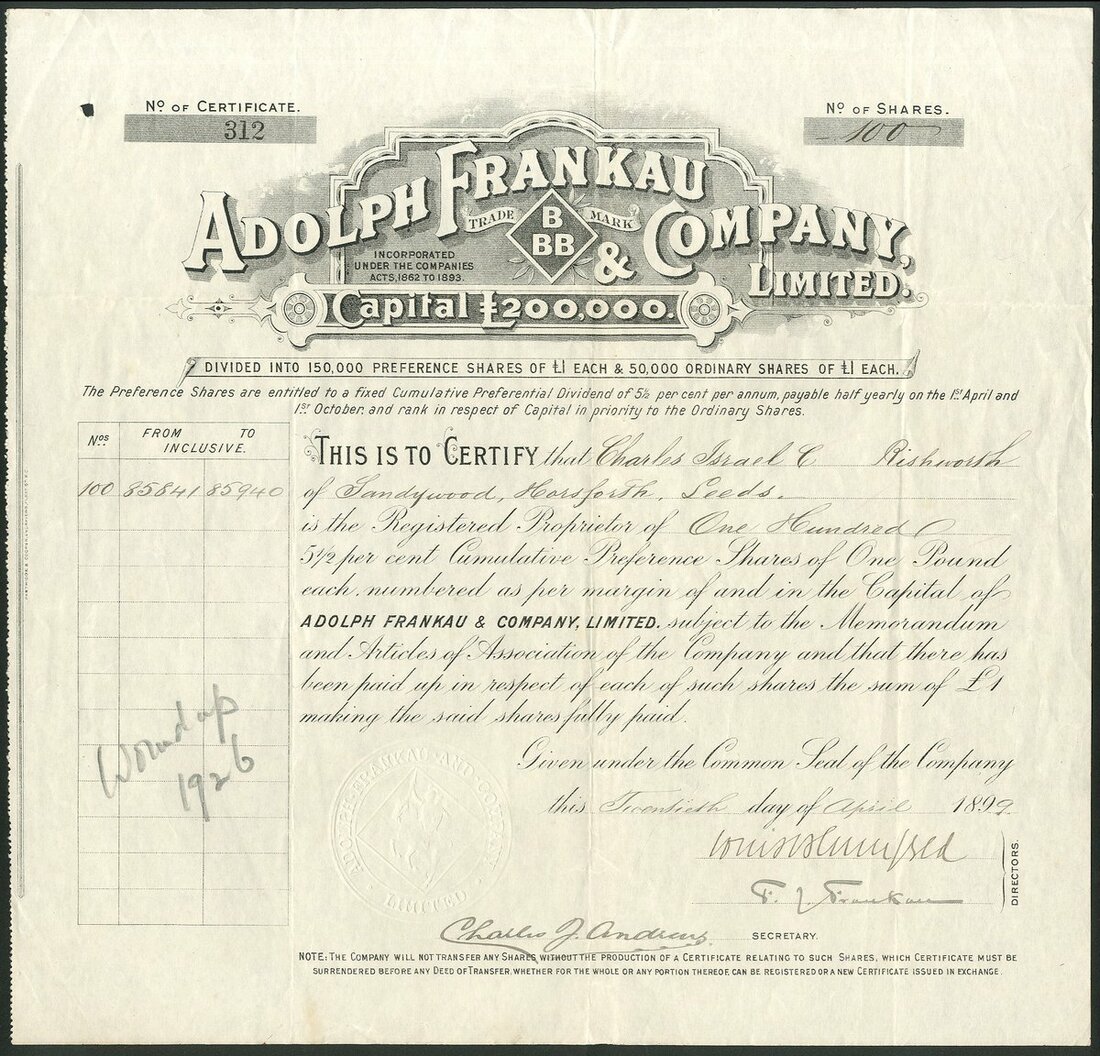 No OF CERTIFICATE.
312
No OF SHARES.
100
ADOLPH FRANKAU & COMPANY, LIMITED.
TRADE MARK
B
BB
INCORPORATED
UNDER THE COMPANIES
ACTS, 1862 TO 1893.
Capital £200,000.
DIVIDED INTO 150,000 PREFERENCE SHARES OF £1 EACH & 50,000 ORDINARY SHARES OF £1 EACH.
The Preference Shares are entitled to a fixed Cumulative Preferential Dividend of 5½ per cent per annum, payable half yearly on the 1st April and
1st October. and rank in respect of Capital in priority to the Ordinary Shares.
Nos FROM TO
INCLUSIVE.
100 85841 85940
THIS IS TO CERTIFY that Charles Israel C Rishworth
of Sandywood, Horsforth, Leeds.
is the Registered Proprietor of One Hundred
5½ per cent Cumulative Preference Shares of One Pound
each, numbered as per margin of and in the Capital of
ADOLPH FRANKAU & COMPANY, LIMITED. subject to the Memorandum
and Articles of Association of the Company and that there has
been paid up in respect of each of such shares the sum of £1
making the said shares fully paid.
Wound up
1926
Given under the Common Seal of the Company
this Twentieth day of April 1899.
ADOLPH FRANKAU AND COMPANY
LIMITED
F. J. Frankau
DIRECTORS.
Charles J. Andrews SECRETARY.
NOTE: THE COMPANY WILL NOT TRANSFER ANY SHARES WITHOUT THE PRODUCTION OF A CERTIFICATE RELATING TO SUCH SHARES, WHICH CERTIFICATE MUST BE
SURRENDERED BEFORE ANY DEED OF TRANSFER, WHETHER FOR THE WHOLE OR ANY PORTION THEREOF, CAN BE REGISTERED OR A NEW CERTIFICATE ISSUED IN EXCHANGE.